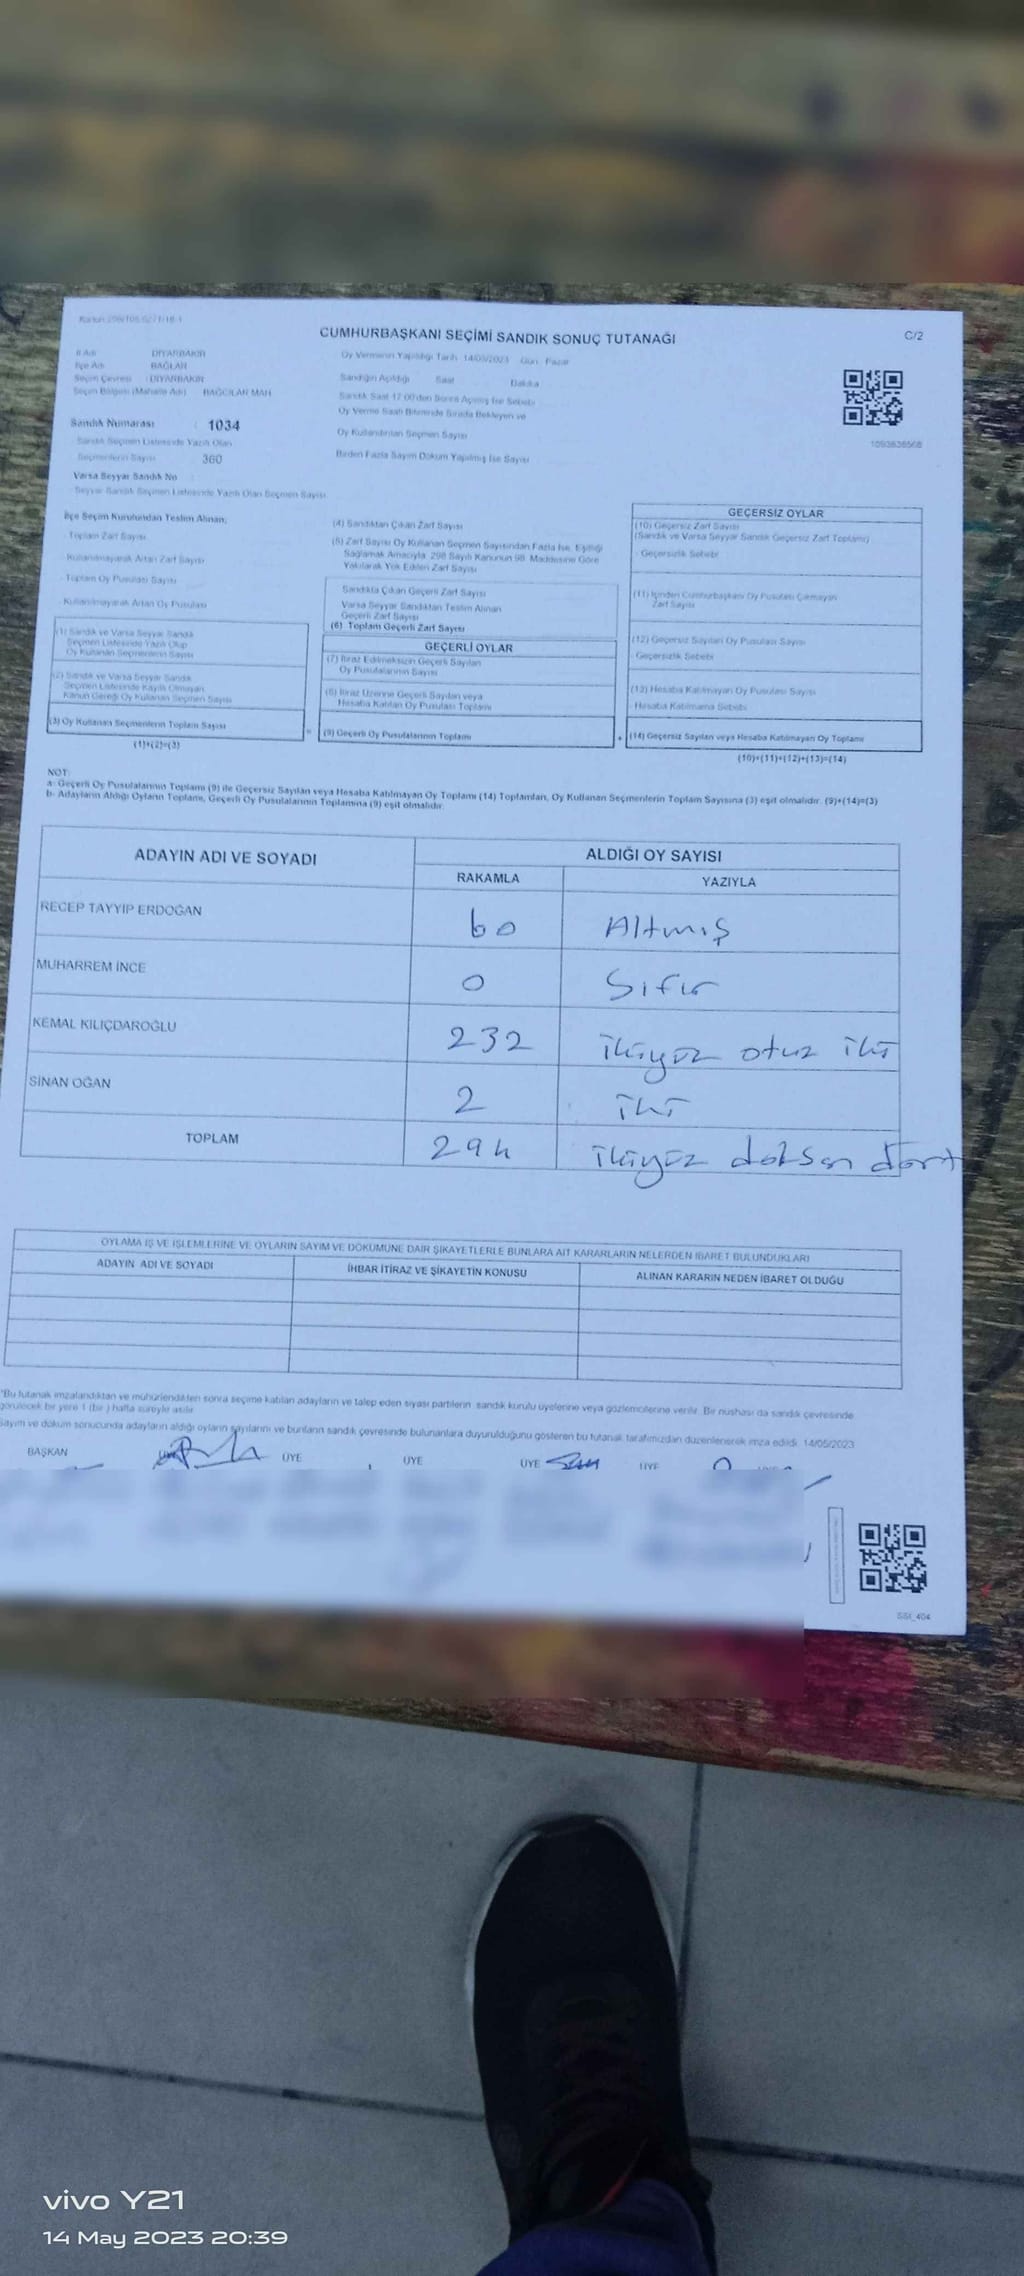 CUMHURBAŞKANI SEÇİMİ SANDIK SONUÇ TUTANAĞI
C/2
İl Adı DİYARBAKIR
İlçe Adı BAĞLAR
Seçim Çevresi : DİYARBAKIR
Seçim Bölgesi (Mahalle Adı) BAĞCILAR MAH
Sandık Numarası : 1034
Sandık Seçmen Listesinde Yazılı Olan
Seçmenlerin Sayısı 360
Varsa Seyyar Sandık No
Seyyar Sandık Seçmen Listesinde Yazılı Olan Seçmen Sayısı
Oy Vermenin Yapıldığı Tarih 14/05/2023 Gün Pazar
Sandığın Açıldığı Saat Dakika
Sandık Saat 17:00'den Sonra Açılmış İse Sebebi
Oy Verme Saati Bitiminde Sırada Bekleyen ve
Oy Kullandırılan Seçmen Sayısı
Birden Fazla Sayım Döküm Yapılmış İse Sayısı
İlçe Seçim Kurulundan Teslim Alınan;
Toplam Zarf Sayısı
Kullanılmayarak Artan Zarf Sayısı
Toplam Oy Pusulası Sayısı
Kullanılmayarak Artan Oy Pusulası
(1) Sandık ve Varsa Seyyar Sandık
Seçmen Listesinde Yazılı Olup
Oy Kullanan Seçmenlerin Sayısı
(2) Sandık ve Varsa Seyyar Sandık
Seçmen Listesinde Kayıtlı Olmayan
Kanun Gereği Oy Kullanan Seçmen Sayısı
(3) Oy Kullanan Seçmenlerin Toplam Sayısı
(1)+(2)=(3)
(4) Sandıktan Çıkan Zarf Sayısı
(5) Zarf Sayısı Oy Kullanan Seçmen Sayısından Fazla İse, Eşitliği
Sağlamak Amacıyla 298 Sayılı Kanunun 98. Maddesine Göre
Yakılarak Yok Edilen Zarf Sayısı
Sandıkta Çıkan Geçerli Zarf Sayısı
Varsa Seyyar Sandıktan Teslim Alınan
Geçerli Zarf Sayısı
(6) Toplam Geçerli Zarf Sayısı
GEÇERLİ OYLAR
(7) İtiraz Edilmeksizin Geçerli Sayılan
Oy Pusulalarının Sayısı
(8) İtiraz Üzerine Geçerli Sayılan veya
Hesaba Katılan Oy Pusulası Toplamı
= (9) Geçerli Oy Pusulalarının Toplamı
GEÇERSİZ OYLAR
(10) Geçersiz Zarf Sayısı
(Sandık ve Varsa Seyyar Sandık Geçersiz Zarf Toplamı)
Geçersizlik Sebebi
(11) İçinden Cumhurbaşkanı Oy Pusulası Çıkmayan
Zarf Sayısı
(12) Geçersiz Sayılan Oy Pusulası Sayısı
Geçersizlik Sebebi
(13) Hesaba Katılmayan Oy Pusulası Sayısı
Hesaba Katılmama Sebebi
+ (14) Geçersiz Sayılan veya Hesaba Katılmayan Oy Toplamı
(10)+(11)+(12)+(13)=(14)
NOT:
a- Geçerli Oy Pusulalarının Toplamı (9) ile Geçersiz Sayılan veya Hesaba Katılmayan Oy Toplamı (14) Toplamları, Oy Kullanan Seçmenlerin Toplam Sayısına (3) eşit olmalıdır. (9)+(14)=(3)
b- Adayların Aldığı Oyların Toplamı, Geçerli Oy Pusulalarının Toplamına (9) eşit olmalıdır.
ADAYIN ADI VE SOYADI ALDIĞI OY SAYISI
RAKAMLA YAZIYLA
RECEP TAYYIP ERDOĞAN 60 Altmış
MUHARREM İNCE 0 Sıfır
KEMAL KILIÇDAROĞLU 232 ikiyüz otuz iki
SİNAN OĞAN 2 iki
TOPLAM 294 ikiyüz doksan dört
OYLAMA İŞ VE İŞLEMLERİNE VE OYLARIN SAYIM VE DÖKÜMÜNE DAİR ŞİKAYETLERLE BUNLARA AİT KARARLARIN NELERDEN İBARET BULUNDUKLARI
ADAYIN ADI VE SOYADI İHBAR İTİRAZ VE ŞİKAYETİN KONUSU ALINAN KARARIN NEDEN İBARET OLDUĞU
*Bu tutanak imzalandıktan ve mühürlendikten sonra seçime katılan adayların ve talep eden siyasi partilerin sandık kurulu üyelerine veya gözlemcilerine verilir. Bir nüshası da sandık çevresinde
görülecek bir yere 1 (bir) hafta süreyle asılır.
Sayım ve döküm sonucunda adayların aldığı oyların sayılarını ve bunların sandık çevresinde bulunanlara duyurulduğunu gösteren bu tutanak tarafımızdan düzenlenerek imza edildi. 14/05/2023
BAŞKAN ÜYE ÜYE ÜYE ÜYE
SSI_404
vivo Y21
14 May 2023 20:39